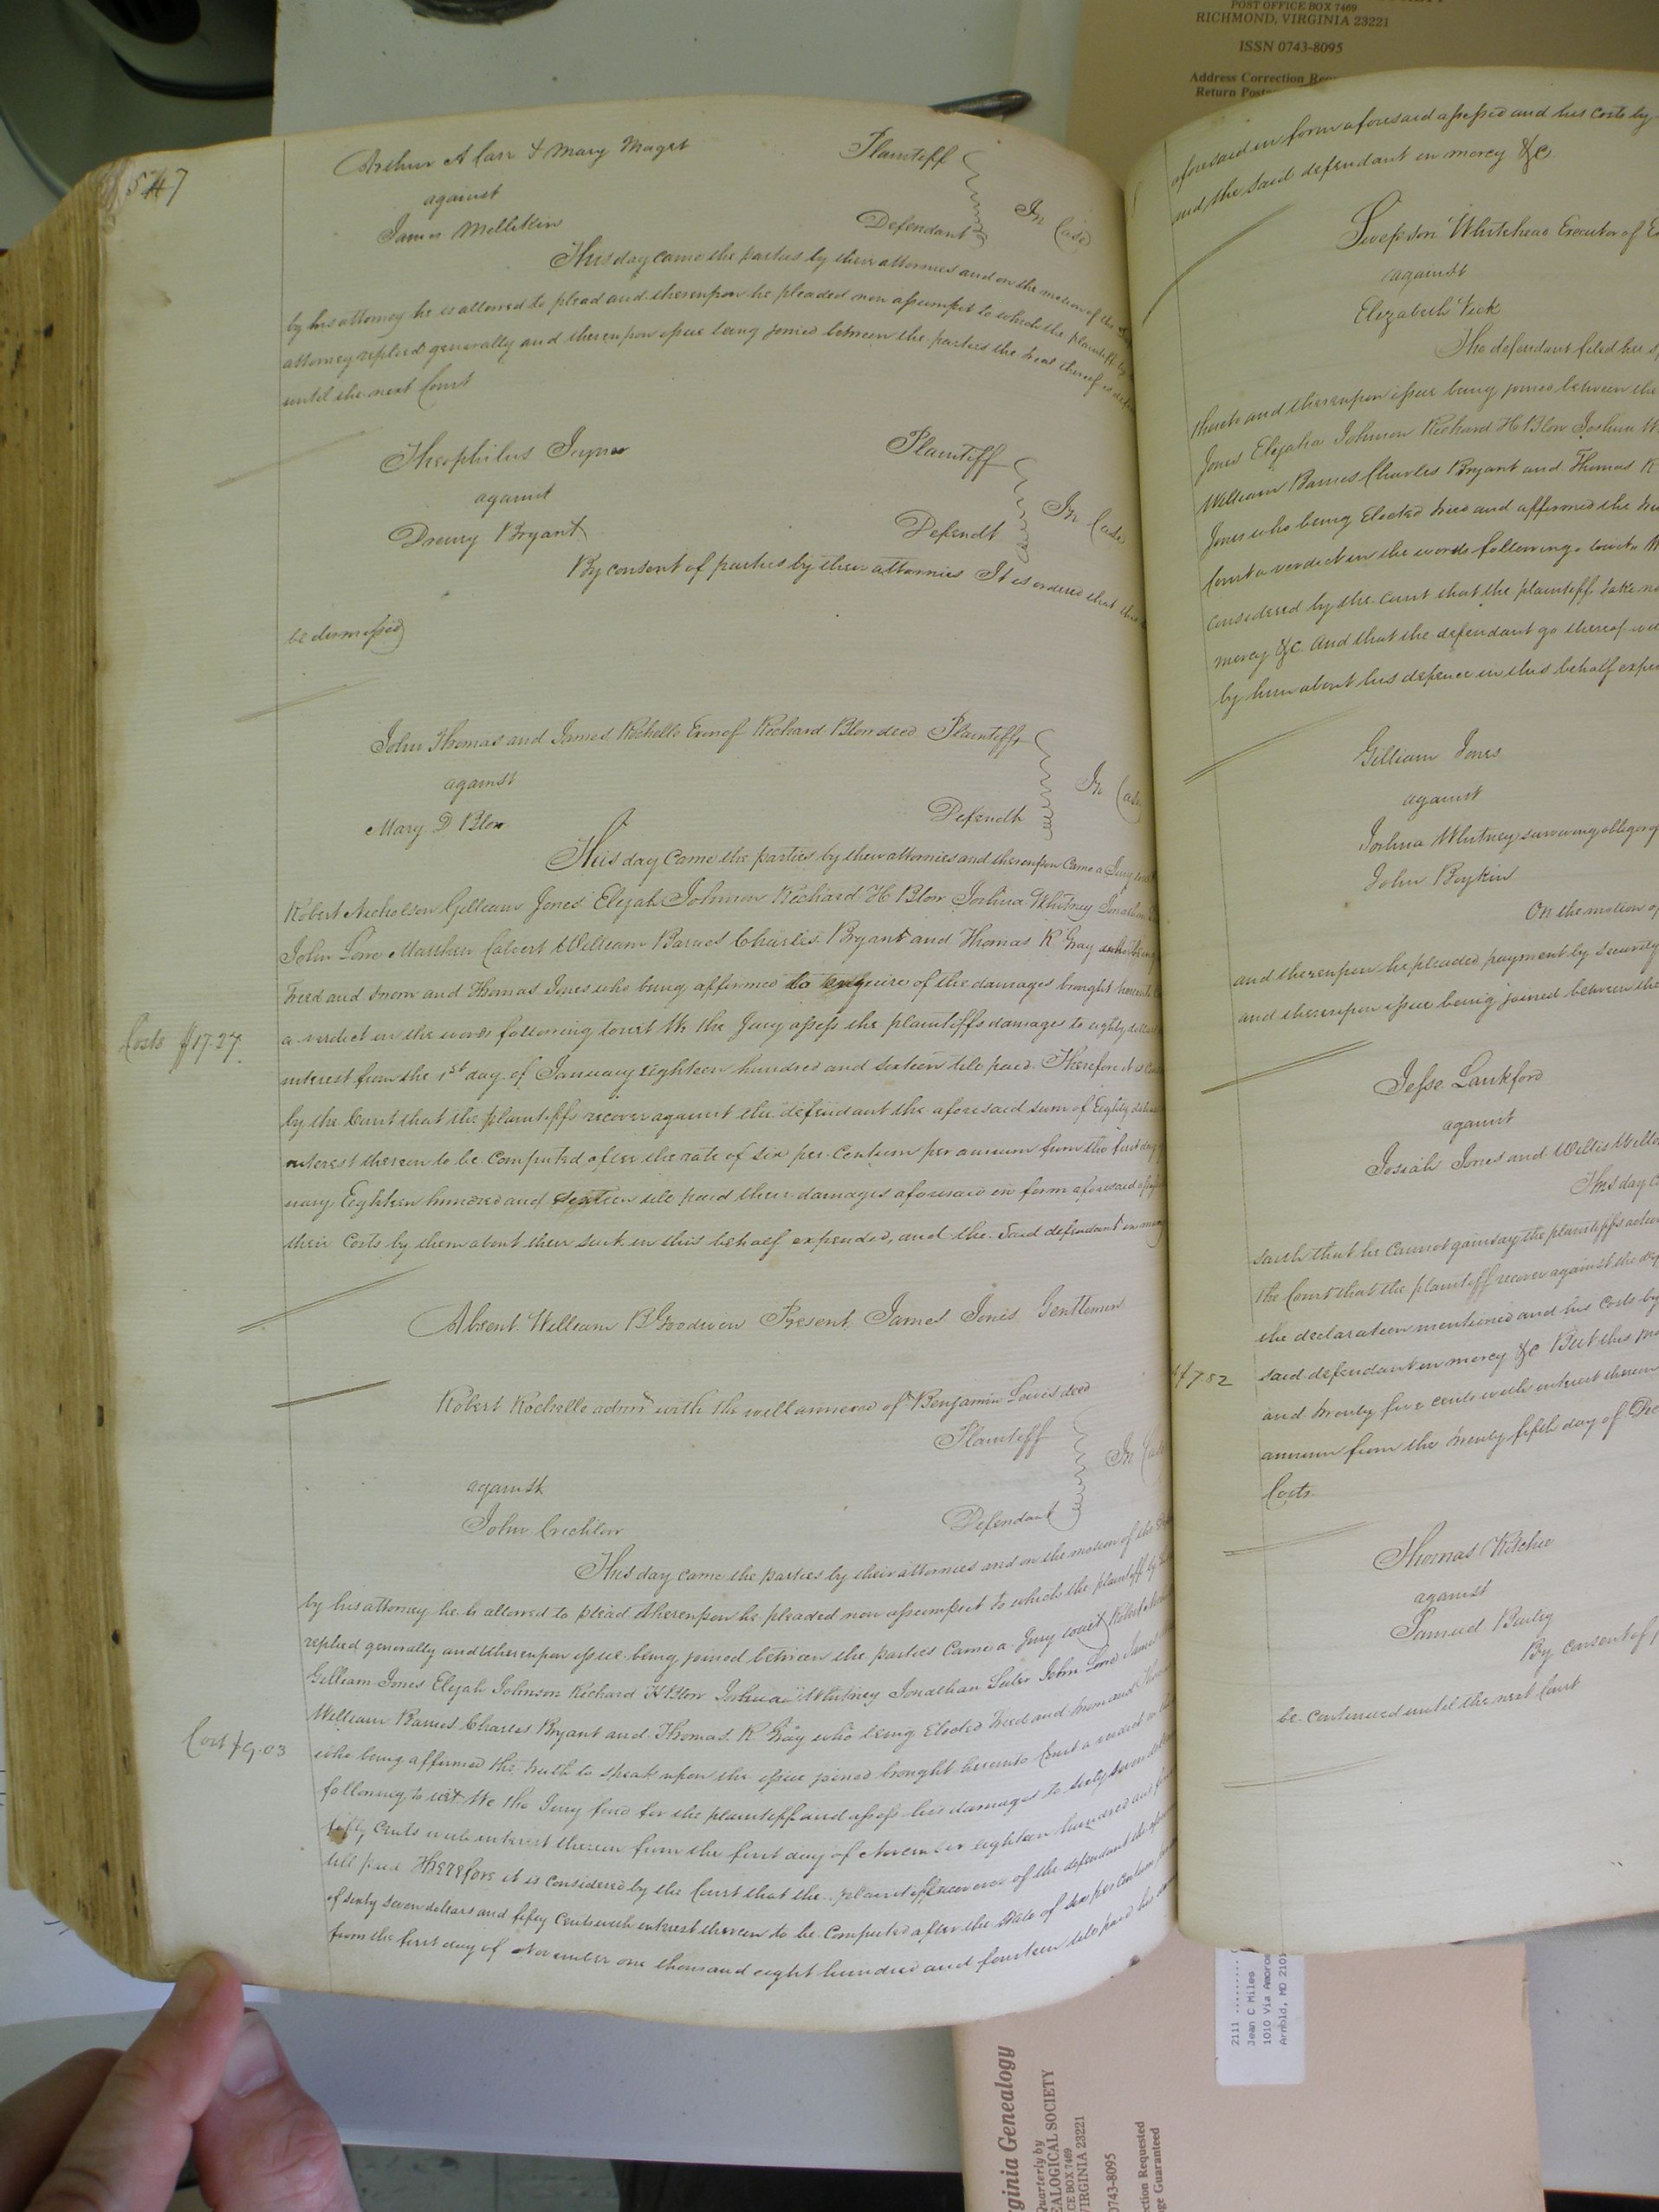 POST OFFICE BOX 7469
RICHMOND, VIRGINIA 23221
ISSN 0743-8095
Address Correction
Return
547
Arthur A Carr & Mary Maget Plaintiff
against In Case
James Millikin Defendant
This day came the parties by their attornies and on the motion of the
by his attorney he is allowed to plead and thereupon he pleaded non assumpsit to which the plaintiff by
attorney replied generally and thereupon issue being joined between the parties the trial thereof is
until the next Court
Theophilus Joyner Plaintiff
against In Case
Drewry Bryant Defendt
By consent of parties by their attornies It is ordered that this
be dismissed
John Thomas and James Rochelle Exors of Richard Blow deced Plaintiffs
against In Case
Mary D Blow Defendt
This day Came the parties by their attornies and thereupon Came a Jury
Robert Nicholson Gilliam Jones Elijah Johnson Richard H Blow Joshua Whitney Jonathan
John Love Matthew Calvert William Barnes Charles Bryant and Thomas R Gray who being
tried and sworn and Thomas Jones who being affirmed to enquire of the damages brought
Costs $17.27
a verdict in the words following towit We the Jury assess the plaintiffs damages to eighty
interest from the 1st day of January eighteen hundred and sixteen till paid. Therefore it is
by the Court that the plaintiffs recover against the defendant the aforesaid sum of Eighty
interest thereon to be Computed after the rate of six per Centum per annum from the first day
uary Eighteen hundred and sixteen till paid their damages aforesaid in form aforesaid
their Costs by them about their suit in this behalf expended, and the said defendant in
Absent William B Goodwin Present James Jones Gentleman
Robert Rochelle admr with the will annexed of Benjamin Lewis deced
Plaintiff
against In
John Crichlow Defendant
This day came the parties by their attornies and on the motion of the
by his attorney he is allowed to plead thereupon he pleaded non assumpsit to which the plaintiff by
replied generally and thereupon issue being joined between the parties Came a Jury towit Robert
Gilliam Jones Elijah Johnson Richard H Blow Joshua Whitney Jonathan John Love James
William Barnes Charles Bryant and Thomas R Gray who being Elected tried and sworn and
Cost $9.03
who being affirmed the truth to speak upon the issue joined brought hereunto Court a verdict in
following to wit We the Jury find for the plaintiff and assess his damages to sixty seven
fifty Cents with interest thereon from the first day of November eighteen hundred and
till paid Therefore it is Considered by the Court that the plaintiff recover of the defendant the
of sixty seven dollars and fifty Cents with interest thereon to be Computed after the Rate of six per Centum
from the first day of November one thousand eight hundred and fourteen till paid his
aforesaid in form aforesaid assessed and his Costs by
and the said defendant in mercy &C
Swepson Whitehead Executor of
against
Elizabeth Vick
The defendant filed her
thereto and thereupon issue being joined between the
Jones Elijaha Johnson Richard H Blow Joshua
William Barnes Charles Bryant and Thomas R
Jones who being Elected tried and affirmed the
Court a verdict in the words following towit
Considered by the Court that the plaintiff take
mercy &C. And that the defendant go thereof
by him about his defence in this behalf
Gilliam Jones
against
Joshua Whitney surviving obligor of
John Boykin
On the motion of
and thereupon he pleaded payment by
and thereupon issue being joined between the
Jesse Lankford
against
Josiah Jones and Willis
This day
saith that he Cannot gainsay the plaintiffs
the Court that the plaintiff recover against the
the declaration mentioned and his Costs by
7.82
said defendant in mercy &C But this
and twenty five cents with interest thereon
annum from the twenty fifth day of
Costs.
Thomas Ritchie
against
Samuel Bailey
By consent of
be continued until the next Court
2111
Jean C Miles
1010 Via
Arnold, MD
Genealogy
Quarterly by
SOCIETY
BOX 7469
VIRGINIA 23221
0743-8095
Requested
Guaranteed